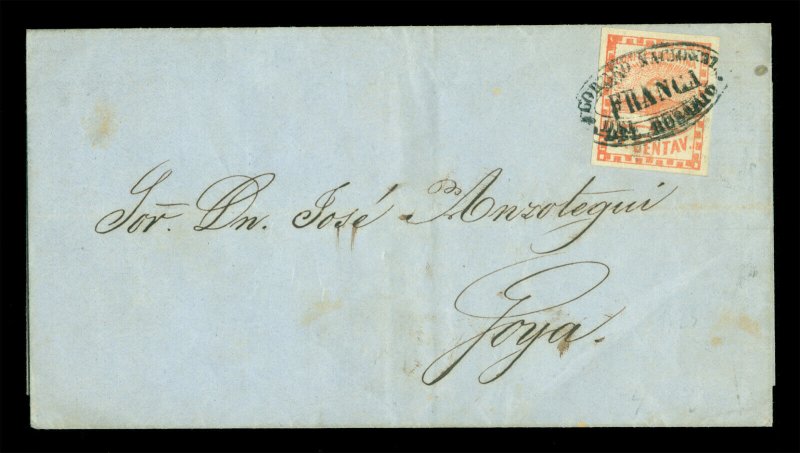 CORREO NACIONAL
FRANCA
DEL ROSARIO
CENTAV.
Sor. Dn. José Anzotegui
Goya.